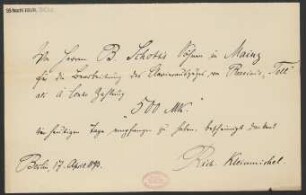 Von Herrn B. Schott's Söhne in Mainz
für die Bearbeitung des Clavierauszuges von Rossini's "Tell"
als à Conto Zahlung
"500 Mk."
am heutigen Tage empfangen zu haben, bescheinigt dankend
Berlin, 17. April 1893.
Rich. Kleinmichel